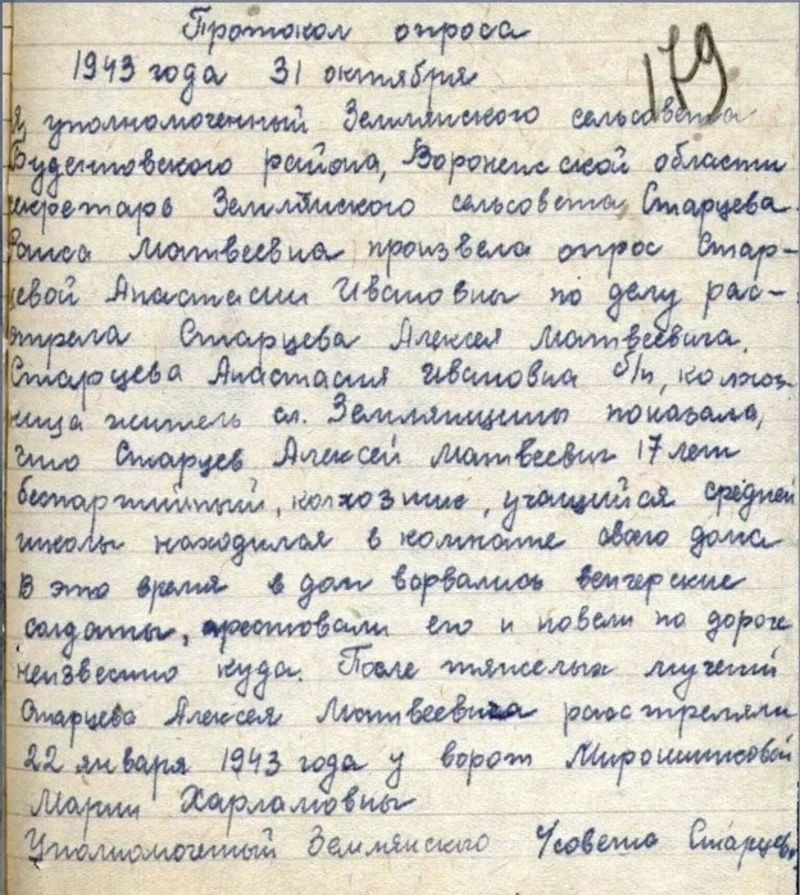 Протокол опроса
179
1943 года 31 октября
Я, уполномоченный Землянского сельсовета
Буденновского района, Воронежской области
секретарь Землянского сельсовета, Старцева
Раиса Матвеевна произвела опрос Стар-
цевой Анастасии Ивановны по делу рас-
стрела Старцева Алексея Матвеевича.
Старцева Анастасия Ивановна б/п, колхоз-
ница житель сл. Землянщины показала,
что Старцев Алексей Матвеевич 17 лет
беспартийный, колхозник, учащийся средней
школы находился в комнате своего дома
В это время в дом ворвались венгерские
солдаты, арестовали его и повели по дороге
неизвестно куда. После тяжелых мучений
Старцева Алексея Матвеевича расстреляли
22 января 1943 года у ворот Мирошниковой
Марии Харламовны
Уполномоченный Землянского с/совета Старцев.